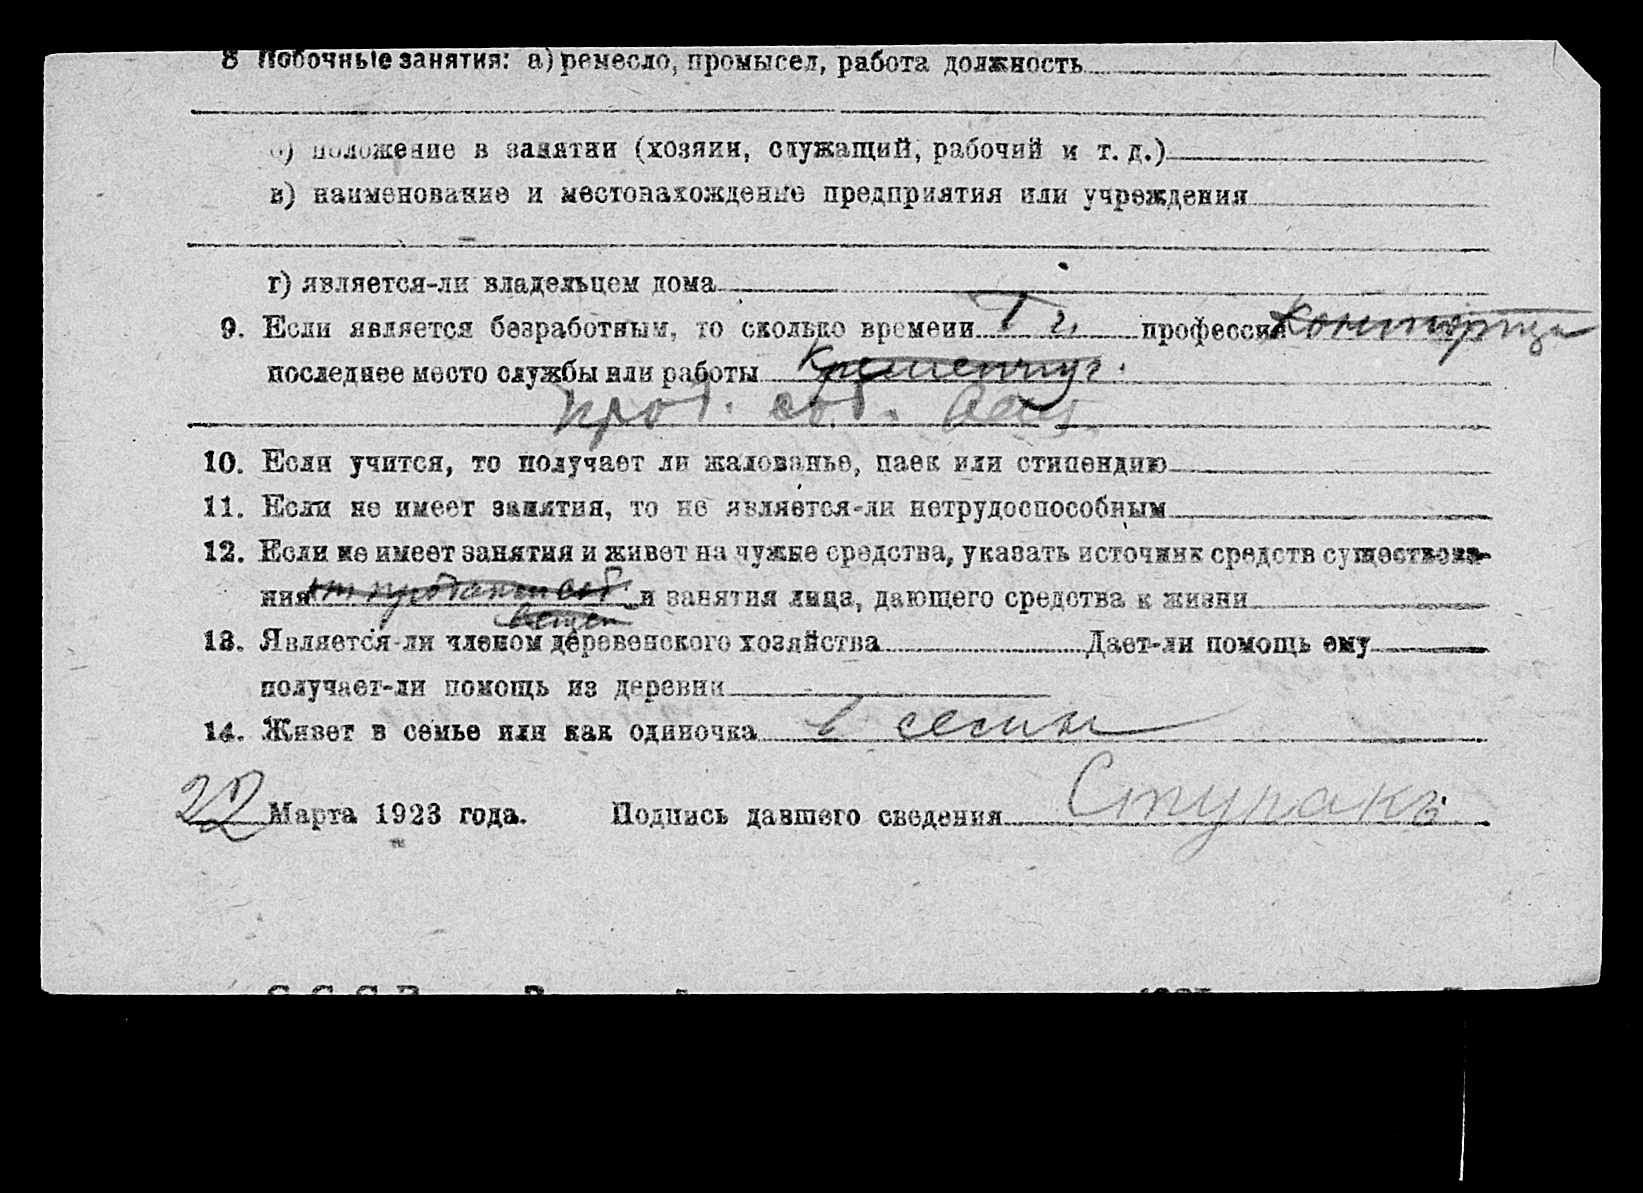 8 Побочные занятия: а) ремесло, промысел, работа должность
б) положение в занятии (хозяин, служащий, рабочий и т. д.)
в) наименование и местонахождение предприятия или учреждения
г) является-ли владельцем дома
9. Если является безработным, то сколько времени 1 г. профессия Конторщи
последнее место службы или работы Кременчуг.
прод. соб. вещ.
10. Если учится, то получает ли жалованье, паек или стипендию
11. Если не имеет занятия, то не является-ли нетрудоспособным
12. Если не имеет занятия и живет на чужие средства, указать источник средств существова-
ния от продажи соб. и занятия лица, дающего средства к жизни
вещей
13. Является-ли членом деревенского хозяйства Дает-ли помощь ему
получает-ли помощь из деревни
14. Живет в семье или как одиночка в семьи
22 Марта 1923 года. Подпись давшего сведения Ступакъ